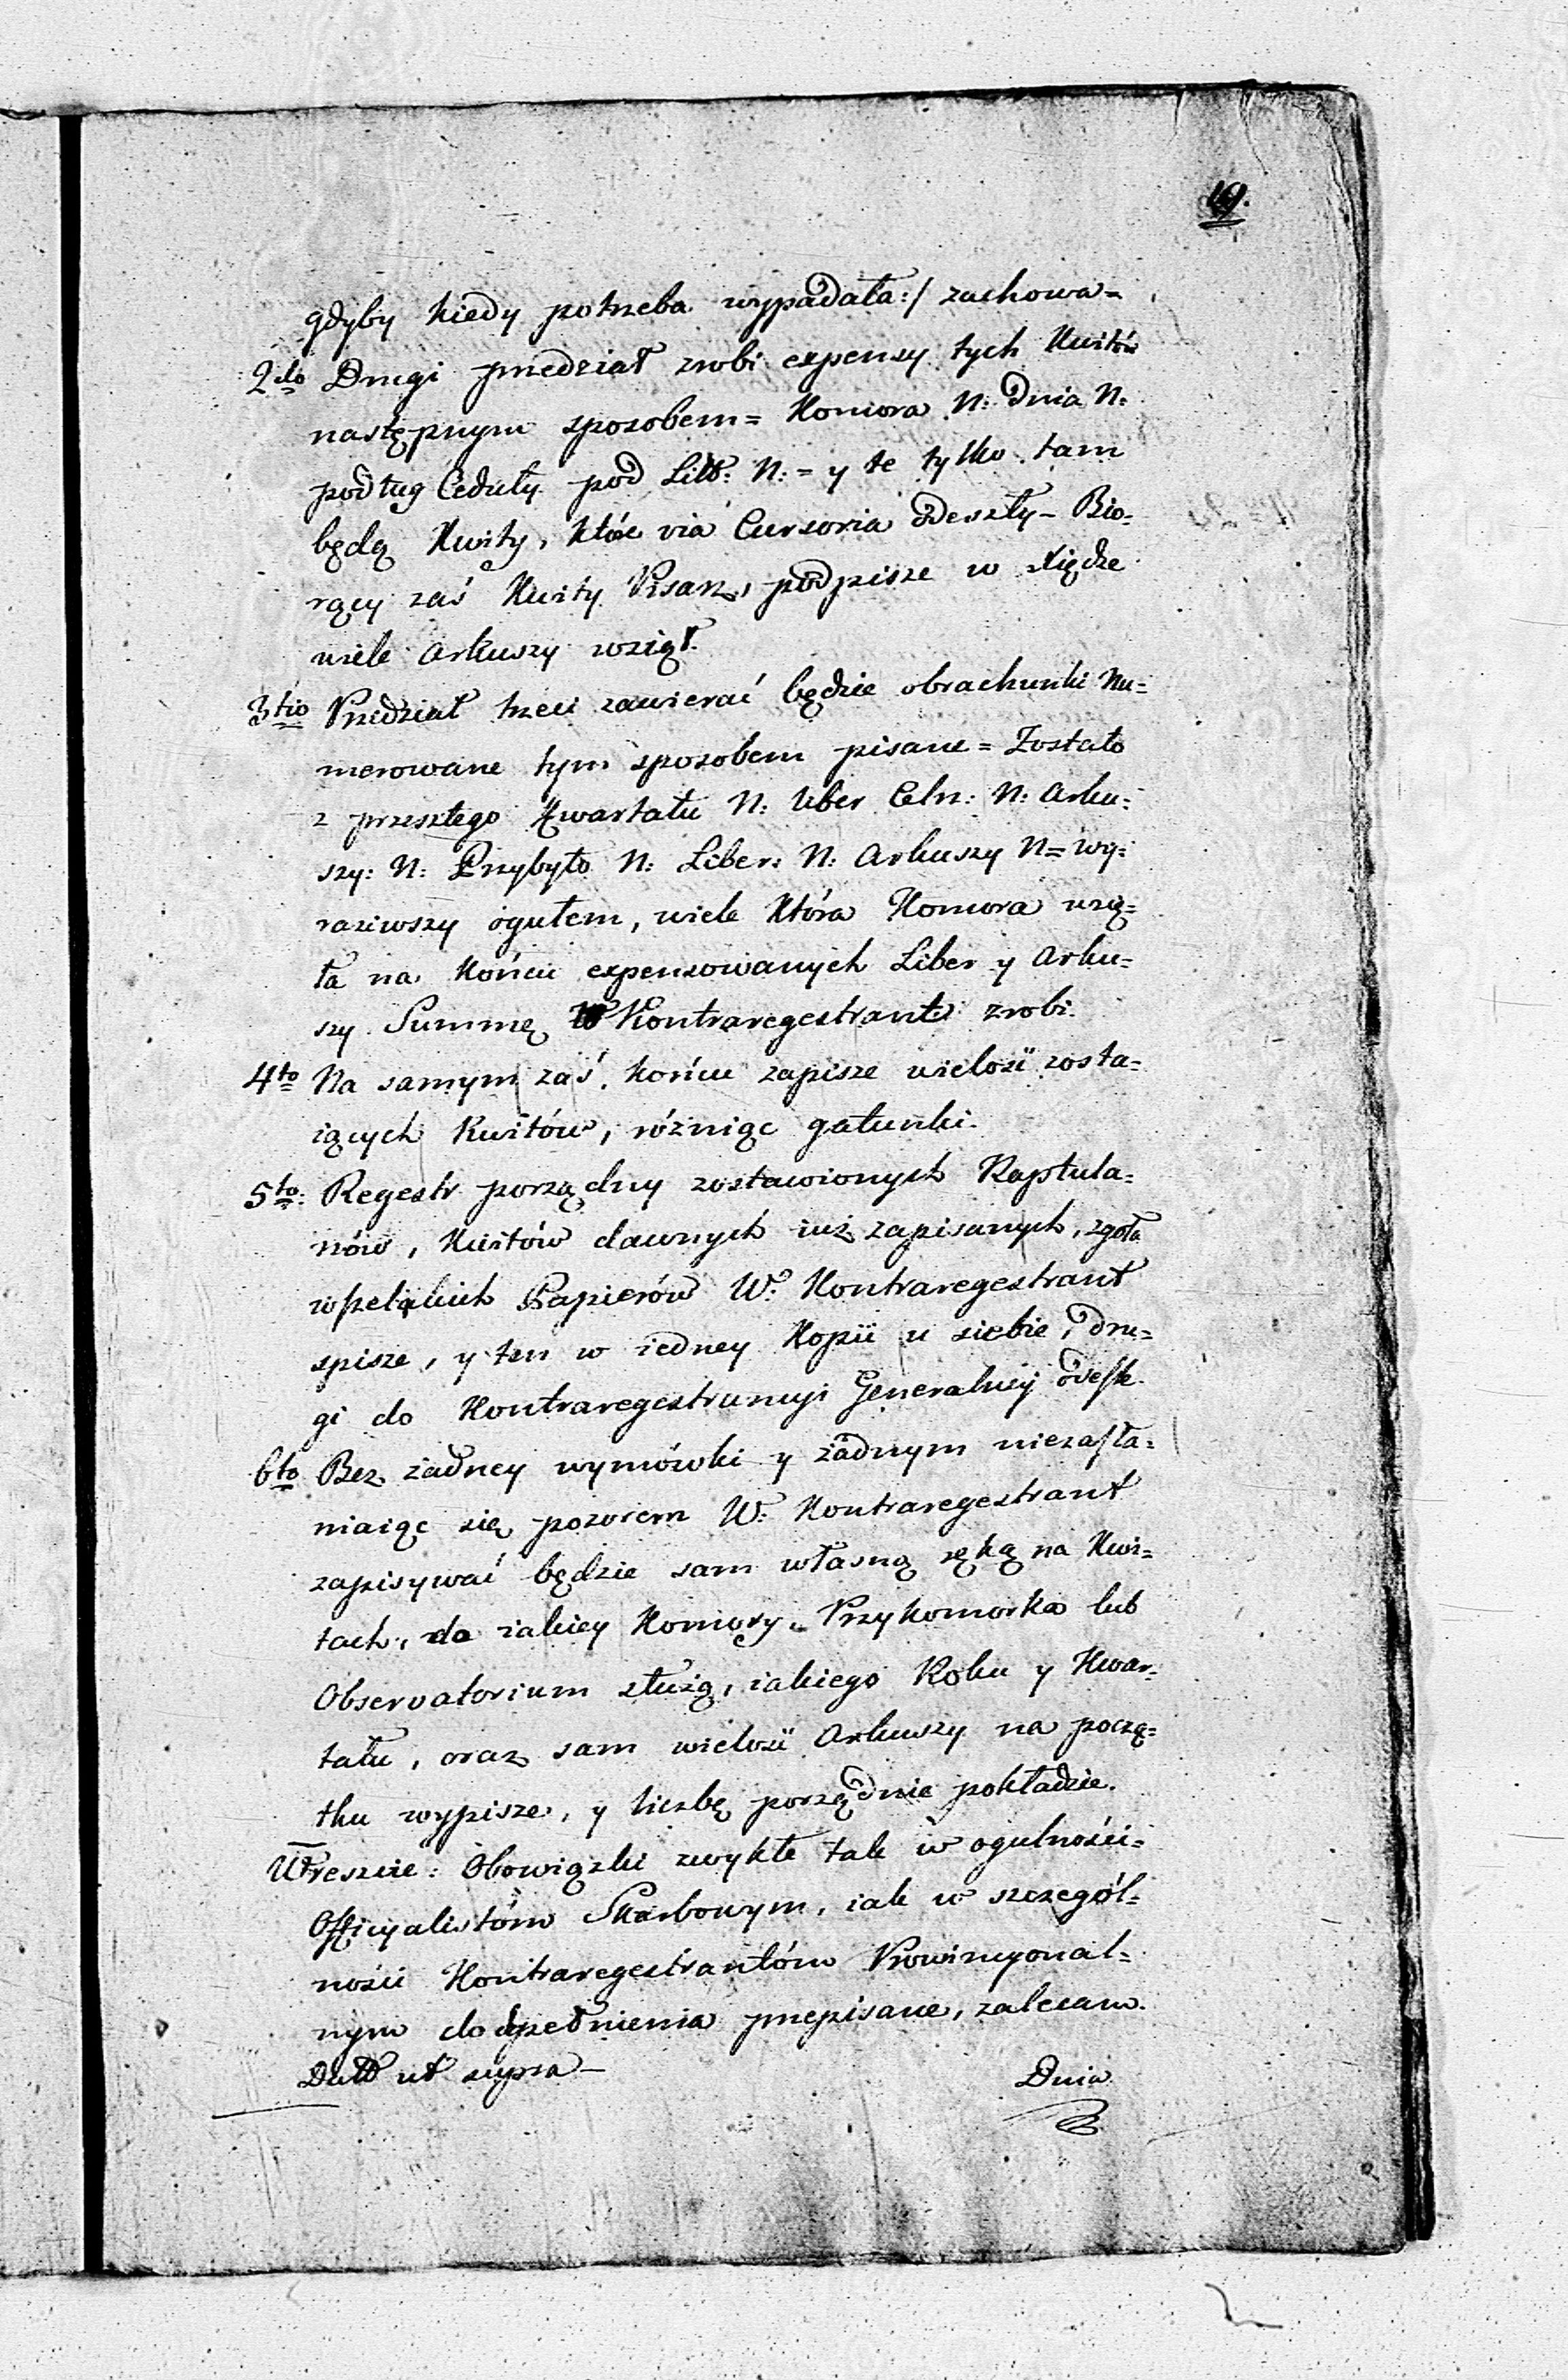 19.
gdyby kiedy potrzeba wypadała:/ zachowa=
2do Drugi przedział zrobi expensy tych Kwitów
następnym sposobem = Komora N: Dnia N:
podług Ceduły pod Litt: N: = y te tylko tam
będą Kwity, które via Cursoria odeszły – Bio=
rący zaś Kwity Pisarz, podpisze w Xiędze
wiele Arkuszy wziął.
3tio Przedział trzeci zawierać będzie obrachunki Nu=
merowane tym sposobem pisane = Zostało
z przeszłego Kwartału N: Liber Celn: N: Arku=
szy: N: Przybyło N: Liber: N: Arkuszy N = wy=
raziwszy ogułem, wiele która Komora wzię=
ła na końcu expensowanych Liber y Arku=
szy Summę W Kontraregestrant zrobi.
4to Na samym zaś końcu zapisze wielość zosta=
iących Kwitów, różniąc gatunki.
5to: Regestr porządny zostawionych Raptula=
rzów, Kwitów dawnych iuż zapisanych, zgoła
wszelakich Papierów W: Kontraregestrant
spisze, y ten w iedney Kopii u siebie, dru=
gi do Kontraregestrancyi Generalney odeszle.
6to Bez żadney wymówki y żadnym niezasła=
niaiąc się pozorem W: Kontraregestrant
zapisywać będzie sam własną ręką na Kwi=
tach, do iakiey Komory, Przykomorka lub
Observatorium służą, iakiego Roku y Kwar=
tału, oraz sam wielość Arkuszy na począ=
tku wypisze, y liczbę porządnie pokładzie.
Wreszcie: Obowiązki zwykłe tak w ogulności
Officyalistóm Skarbowym, iak w szczegól=
ności Kontraregestrantóm Prowincyonal=
nym do dopełnienia przepisane, zalecam.
Datt ut supra –
Dnia